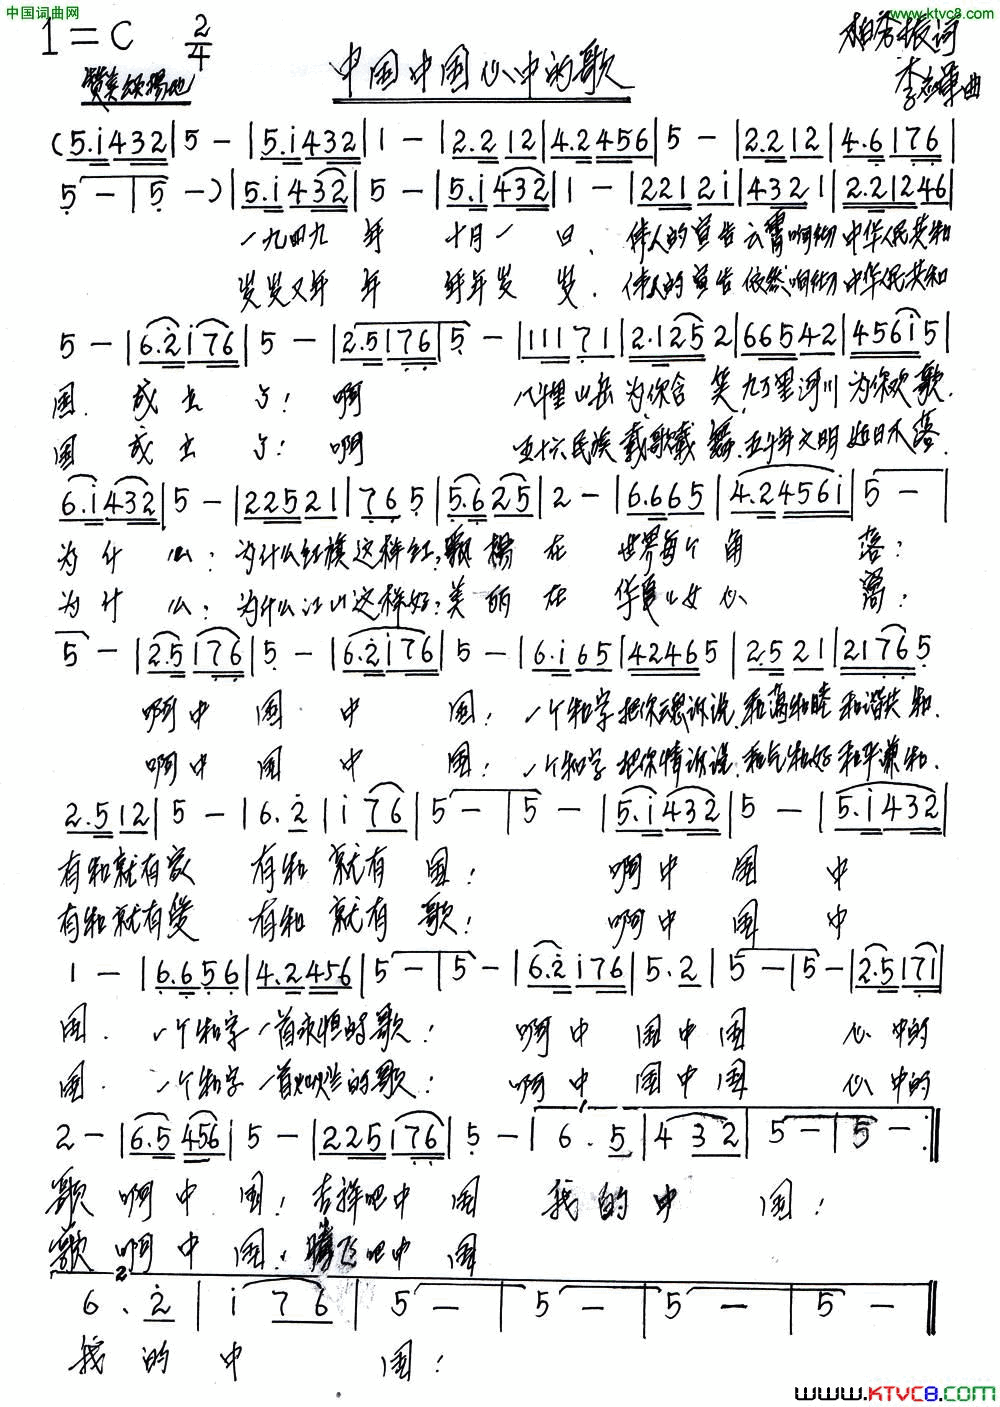 中国词曲网
www.ktvc8.com
1=C 2/4
中国中国心中的歌
柏秀振词
赞美颂扬地
曲
(5.i432|5-|5.i432|1-|2.212|4.2456|5-|2.212|4.6176|
5-|5-)|5.i432|5-|5.i432|1-|2212i|4321|2.21246|
一九四九年十月一日、伟人的宣告云霄响彻中华人民共和
岁岁又年年年年岁岁、伟人的宣告依然响彻中华人民共和
5-|6.2i76|5-|2.5176|5-|11171|2.1252|66542|456i5|
国.成立了!啊八千里山岳为你含笑,九万里河川为你欢歌.
国成立了!啊五十六民族载歌载舞.五千年文明如日不落.
6.i432|5-|22521|765|5.625|2-|6.665|4.2456i|5-|
为什么:为什么红旗这样红,飘扬在世界每个角落?
为什么:为什么江山这样好;美丽在华夏儿女心窝?
5-|2.5176|5-|6.2i76|5-|6.i65|42465|2.521|21765
啊中国中国!一个和字把你魂诉说.和满和睦和谐共和.
啊中国中国!一个和字把你情诉说.和气和好和平兼和.
2.512|5-|6.2|i76|5-|5-|5.i432|5-|5.i432|
有和就有家有和就有国!啊中国中
有和就有爱有和就有歌!啊中国中
1-|6.656|4.2456|5-|5-|6.2i76|5.2|5-|5-|2.5171|
国.一个和字一首永恒的歌!啊中国中国心中的
国.一个和字一首灿烂的歌!啊中国中国心中的
2-|6.5456|5-|225i76|5-|6.5|432|5-|5-:||
歌啊中国!吉祥吧中国我的中国!
歌啊中国!腾飞吧中国
6.2|i76|5-|5-|5-|5-||
我的中国!
www.KTVC8.com